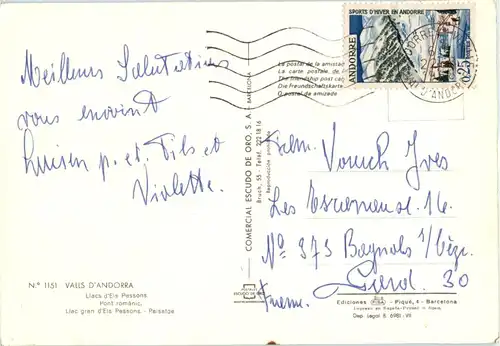 Meilleurs Salutations
vous envoient
Luisen p. et Fils et
Violette.
N.º 1151 VALLS D'ANDORRA
Llacs d'Els Pessons
Pont romànic.
Llac gran d'Els Pessons. - Paisatge
COMERCIAL ESCUDO DE ORO, S. A. - BARCELONA
Bruch, 55 - Teléf. 222 18 16
Reproducción prohibida
La postal de la amistad
La carte postale de
The friendship post car
Die Freundschaftskarte
O postal da amizade
SPORTS D'HIVER EN ANDORRE
ANDORRE
0,25
Yves
Les 16.
Nº 373 Bagnols s/Cèze.
Gard. 30
France.
ESCUDO DE ORO
Ediciones FISA - Piqué, - Barcelona
Dep. Legal B. 6981-VII